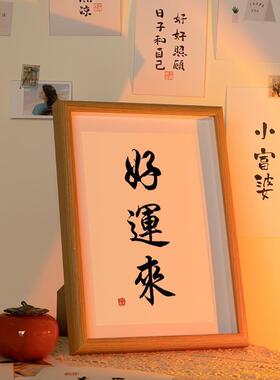 好好照顧
日子和自己
小富婆
好運來